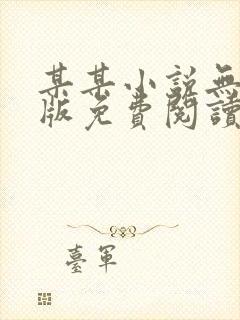 某某小说無
版免費閱讀
臺軍